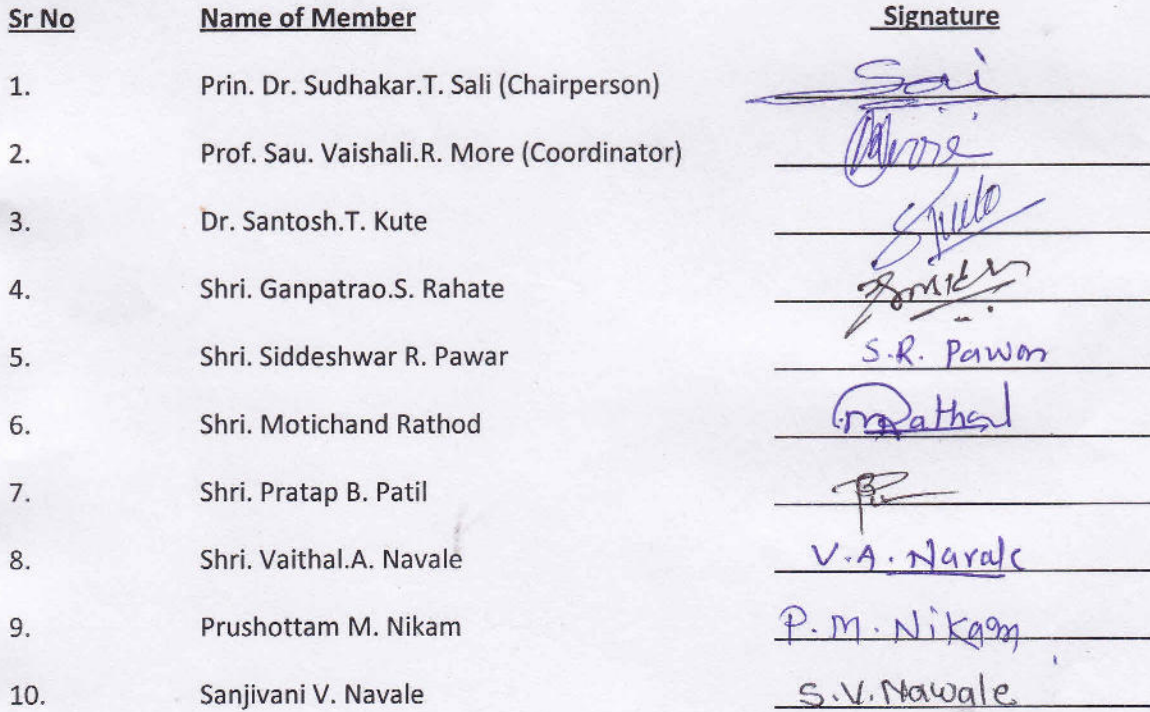 Sr No Name of Member Signature
1. Prin. Dr. Sudhakar.T. Sali (Chairperson) Sai
2. Prof. Sau. Vaishali.R. More (Coordinator)
3. Dr. Santosh.T. Kute
4. Shri. Ganpatrao.S. Rahate
5. Shri. Siddeshwar R. Pawar S.R. Pawar
6. Shri. Motichand Rathod MRathod
7. Shri. Pratap B. Patil
8. Shri. Vaithal.A. Navale V.A. Navale
9. Prushottam M. Nikam P.M. Nikam
10. Sanjivani V. Navale S.V. Nawale